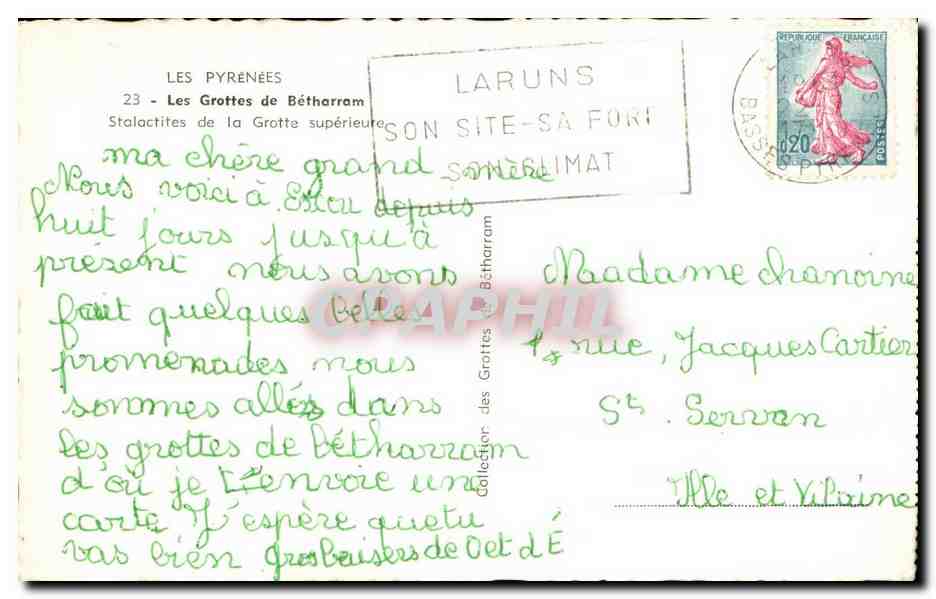 LES PYRÉNÉES
23 - Les Grottes de Bétharram
Stalactites de la Grotte supérieure
LARUNS
SON SITE-SA FORÊT
SON CLIMAT
REPUBLIQUE FRANÇAISE
0,20
POSTES
BASSES-PYR
ma chère grand mère
Nous voici à depuis
huit jours jusqu'à
présent nous avons
fait quelques belles
promenades nous
sommes allés dans
les grottes de Bétharram
d'où je t'envoie une
carte J'espère que tu
vas bien gros baisers de O et d É
Collection des Grottes de Bétharram
Maadame chanoine
1, rue, Jacques Cartier
St. Servan
Ille et Vilaine
CPAPHIL